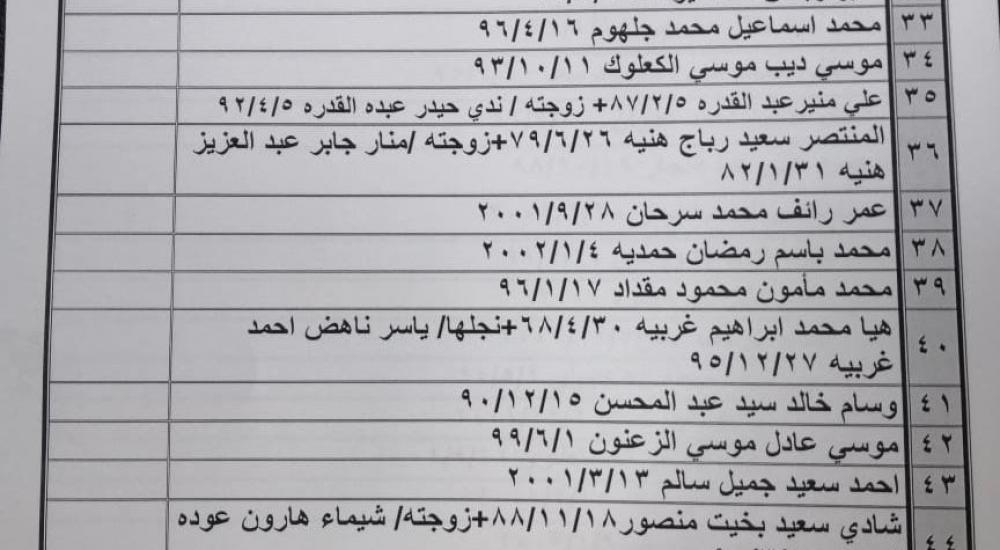 ٣٣ محمد اسماعيل محمد جلهوم ٩٦/٤/١٦
٣٤ موسي ديب موسي الكعلوك ٩٣/١٠/١١
٣٥ علي منيرعبد القدره ٨٧/٢/٥+ زوجته / ندي حيدر عبده القدره ٩٢/٤/٥
٣٦ المنتصر سعيد رباح هنيه ٧٩/٦/٢٦+زوجته /منار جابر عبد العزيز
هنيه ٨٢/١/٣١
٣٧ عمر رائف محمد سرحان ٢٠٠١/٩/٢٨
٣٨ محمد باسم رمضان حمديه ٢٠٠٢/١/٤
٣٩ محمد مأمون محمود مقداد ٩٦/١/١٧
٤٠ هيا محمد ابراهيم غربيه ٦٨/٤/٣٠+نجلها/ ياسر ناهض احمد
غربيه ٩٥/١٢/٢٧
٤١ وسام خالد سيد عبد المحسن ٩٠/١٢/١٥
٤٢ موسي عادل موسي الزعنون ٩٩/٦/١
٤٣ احمد سعيد جميل سالم ٢٠٠١/٣/١٣
٤٤ شادي سعيد بخيت منصور٨٨/١١/١٨+زوجته/ شيماء هارون عوده